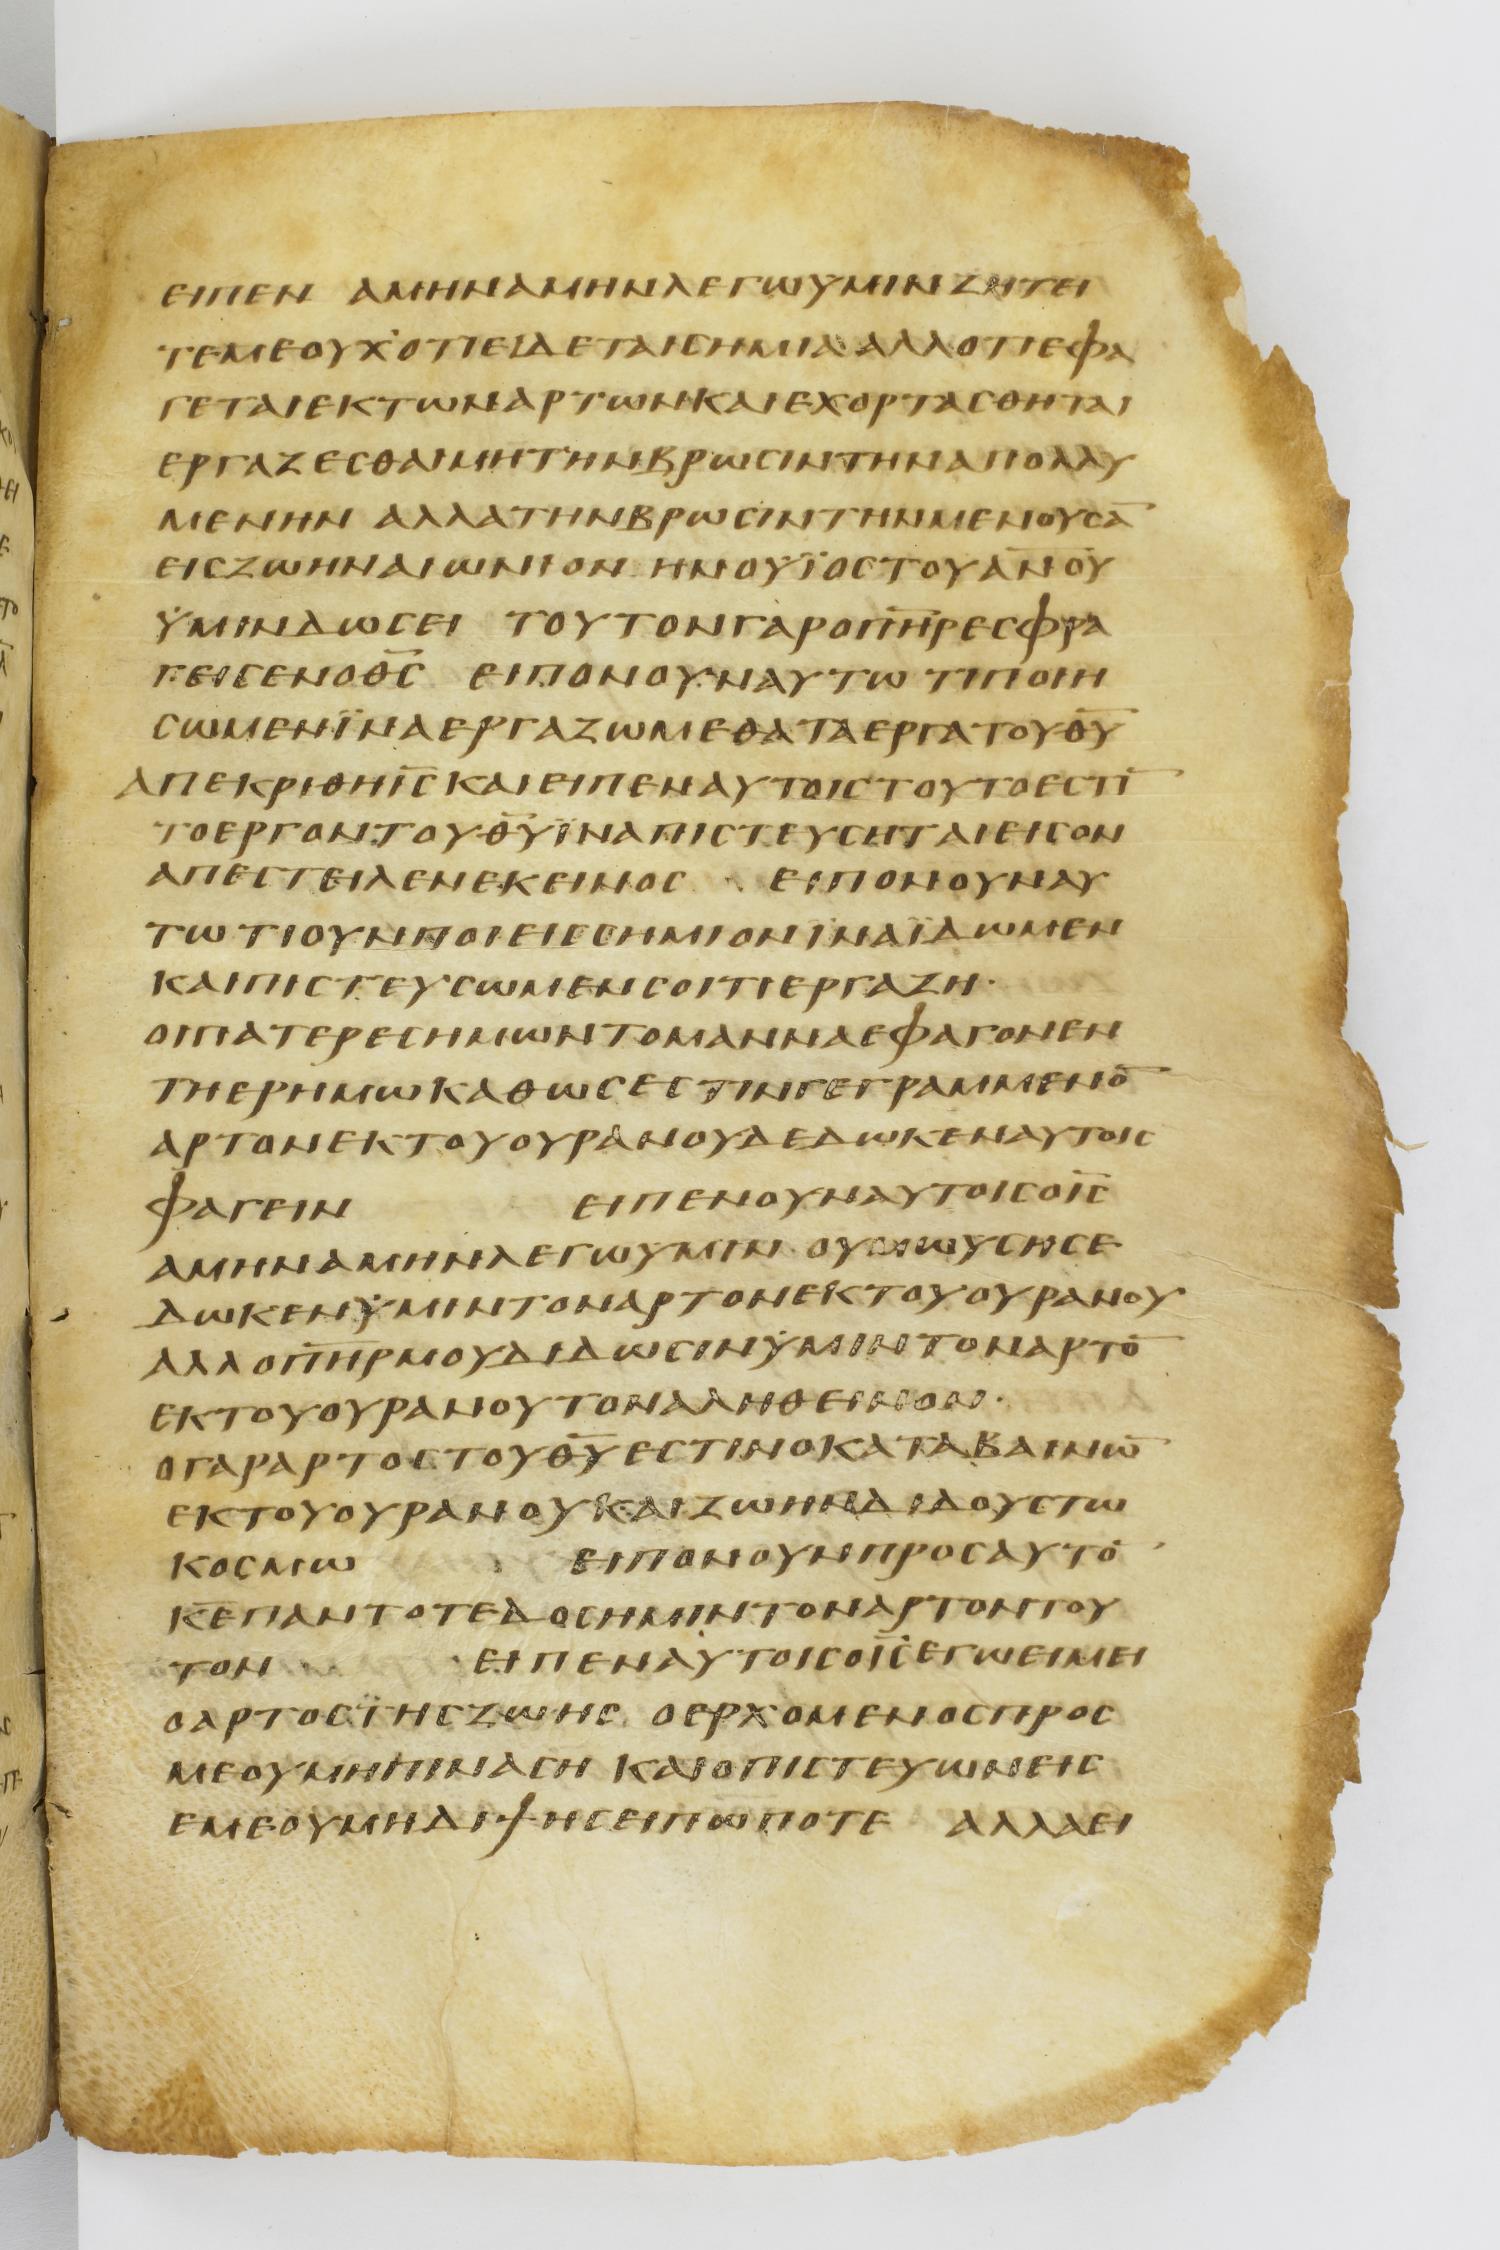 ΕΙΠΕΝ ΑΜΗΝΑΜΗΝΛΕΓΩΥΜΙΝΖΗΤΕΙ
ΤΕΜΕΟΥΧΟΤΙΕΙΔΕΤΑΙCΗΜΙΑΑΛΛΟΤΙΕΦΑ
ΓΕΤΑΙΕΚΤΩΝΑΡΤΩΝΚΑΙΕΧΟΡΤΑCΘΗΤΑΙ
ΕΡΓΑΖΕCΘΑΙΜΗΤΗΝΒΡΩCΙΝΤΗΝΑΠΟΛΛΥ
ΜΕΝΗΝ ΑΛΛΑΤΗΝΒΡΩCΙΝΤΗΝΜΕΝΟΥCΑ̅
ΕΙCΖΩΗΝΑΙΩΝΙΟΝ ΗΝΟΥΪΟCΤΟΥΑ̅Ν̅Ο̅Υ̅
ΫΜΙΝΔΩCΕΙ ΤΟΥΤΟΝΓΑΡΟΠ̅Η̅Ρ̅ΕCΦΡΑ
ΓΕΙCΕΝΟΘ̅C̅ ΕΙΠΟΝΟΥΝΑΥΤΩΤΙΠΟΙΗ
CΩΜΕΝΪΝΑΕΡΓΑΖΩΜΕΘΑΤΑΕΡΓΑΤΟΥΘ̅Υ̅
ΑΠΕΚΡΙΘΗΙ̅C̅ΚΑΙΕΙΠΕΝΑΥΤΟΙCΤΟΥΤΟΕCΤΙ̅
ΤΟΕΡΓΟΝΤΟΥΘ̅Υ̅ΪΝΑΠΙCΤΕΥCΗΤΑΙΕΙCΟΝ
ΑΠΕCΤΕΙΛΕΝΕΚΕΙΝΟC ΕΙΠΟΝΟΥΝΑΥ
ΤΩΤΙΟΥΝΠΟΙΕΙCCΗΜΙΟΝΪΝΑΪΔΩΜΕΝ
ΚΑΙΠΙCΤΕΥCΩΜΕΝCΟΙΤΙΕΡΓΑΖΗ·
ΟΙΠΑΤΕΡΕCΗΜΩΝΤΟΜΑΝΝΑΕΦΑΓΟΝΕΝ
ΤΗΕΡΗΜΩΚΑΘΩCΕCΤΙΝΓΕΓΡΑΜΜΕΝΟ̅
ΑΡΤΟΝΕΚΤΟΥΟΥΡΑΝΟΥΔΕΔΩΚΕΝΑΥΤΟΙC
ΦΑΓΕΙΝ ΕΙΠΕΝΟΥΝΑΥΤΟΙCΟΙ̅C̅
ΑΜΗΝΑΜΗΝΛΕΓΩΥΜΙΝ ΟΥΜΩΥCΗCΕ
ΔΩΚΕΝΫΜΙΝΤΟΝΑΡΤΟΝΕΚΤΟΥΟΥΡΑΝΟΥ
ΑΛΛΟΠ̅Η̅Ρ̅ΜΟΥΔΙΔΩCΙΝΫΜΙΝΤΟΝΑΡΤΟ̅
ΕΚΤΟΥΟΥΡΑΝΟΥΤΟΝΑΛΗΘΕΙΝΟΝ·
ΟΓΑΡΑΡΤΟCΤΟΥΘ̅Υ̅ΕCΤΙΝΟΚΑΤΑΒΑΙΝΩ̅
ΕΚΤΟΥΟΥΡΑΝΟΥΚΑΙΖΩΗΝΔΙΔΟΥCΤΩ
ΚΟCΜΩ ΕΙΠΟΝΟΥΝΠΡΟCΑΥΤΟ̅
Κ̅Ε̅ΠΑΝΤΟΤΕΔΟCΗΜΙΝΤΟΝΑΡΤΟΝΤΟΥ
ΤΟΝ ΕΙΠΕΝΑΥΤΟΙCΟΙ̅C̅ΕΓΩΕΙΜΕΙ
ΟΑΡΤΟCΤΗCΖΩΗC ΟΕΡΧΟΜΕΝΟCΠΡΟC
ΜΕΟΥΜΗΠΙΝΑCΗ ΚΑΙΟΠΙCΤΕΥΩΝΕΙC
ΕΜΕΟΥΜΗΔΙΨΗCΕΙΠΩΠΟΤΕ ΑΛΛΑΕΙ